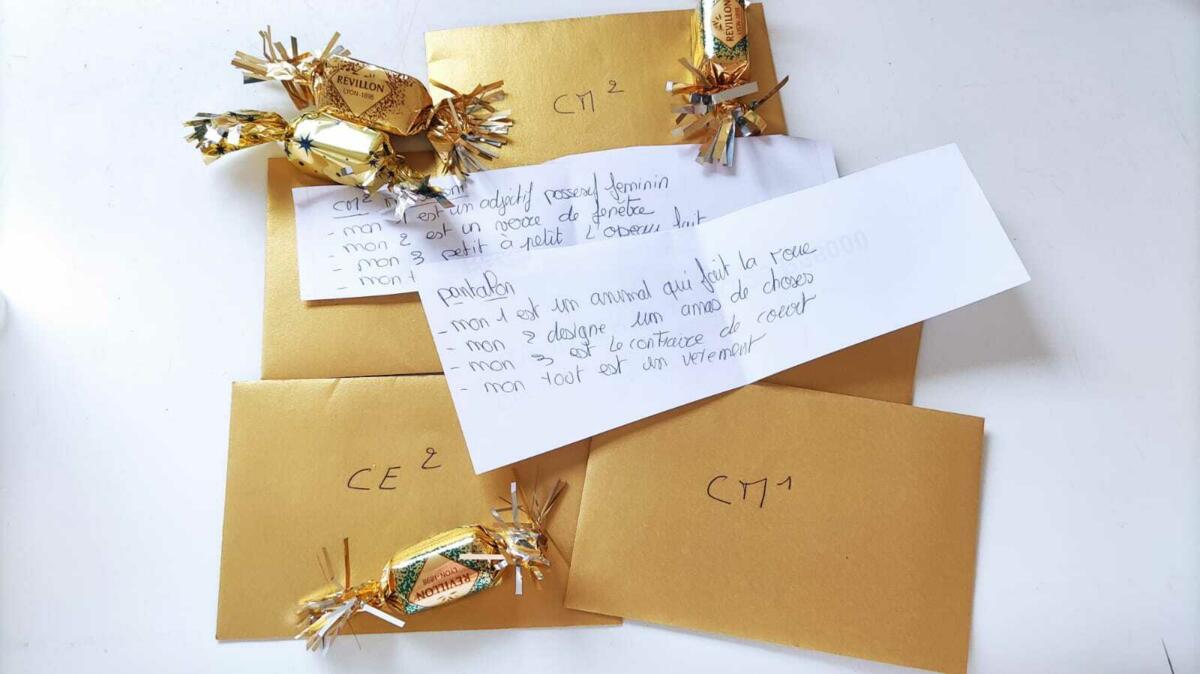 REVILLON
LYON-1898
REVILLON
LYON-1898
CM2
CM2
- mon 1 est un adjectif possesif feminin
- mon 2 est un verre de fenêtre
- mon 3 petit à petit l'oiseau fait
- mon t
pantalon
- mon 1 est un animal qui fait la roue
- mon 2 designe un amas de choses
- mon 3 est le contraire de court
- mon tout est un vetement
CE2
CM1
REVILLON
LYON-1898